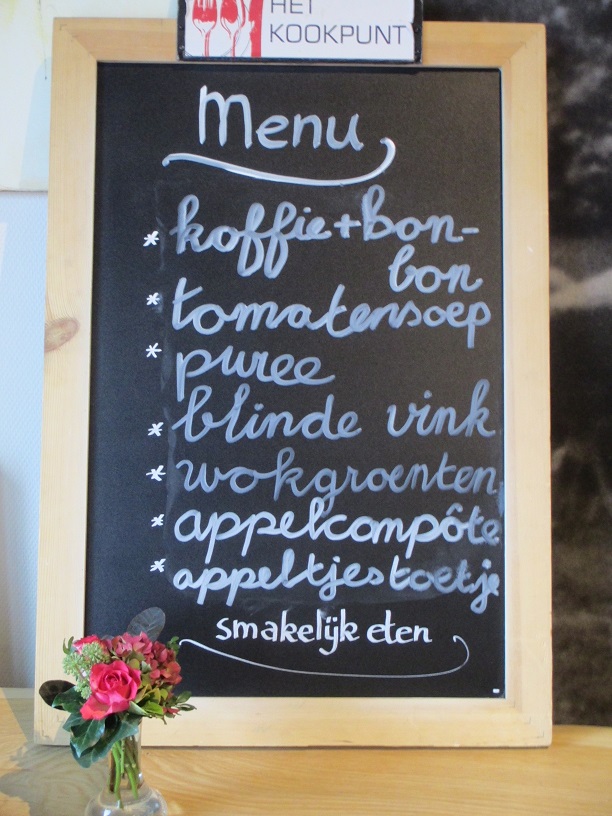 HET
KOOKPUNT
Menu
* koffie + bon-
bon
* tomatensoep
* puree
* blinde vink
* wokgroenten
* appelcompôte
* appeltjestoetje
smakelijk eten